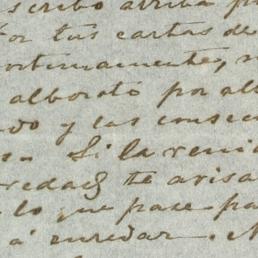 scribo arriba p
or tus cartas de
ortunamente, n
alboroto por al
do y las consec
s. Si la veni
redad te avisa
lo que pase pa
á enredar.